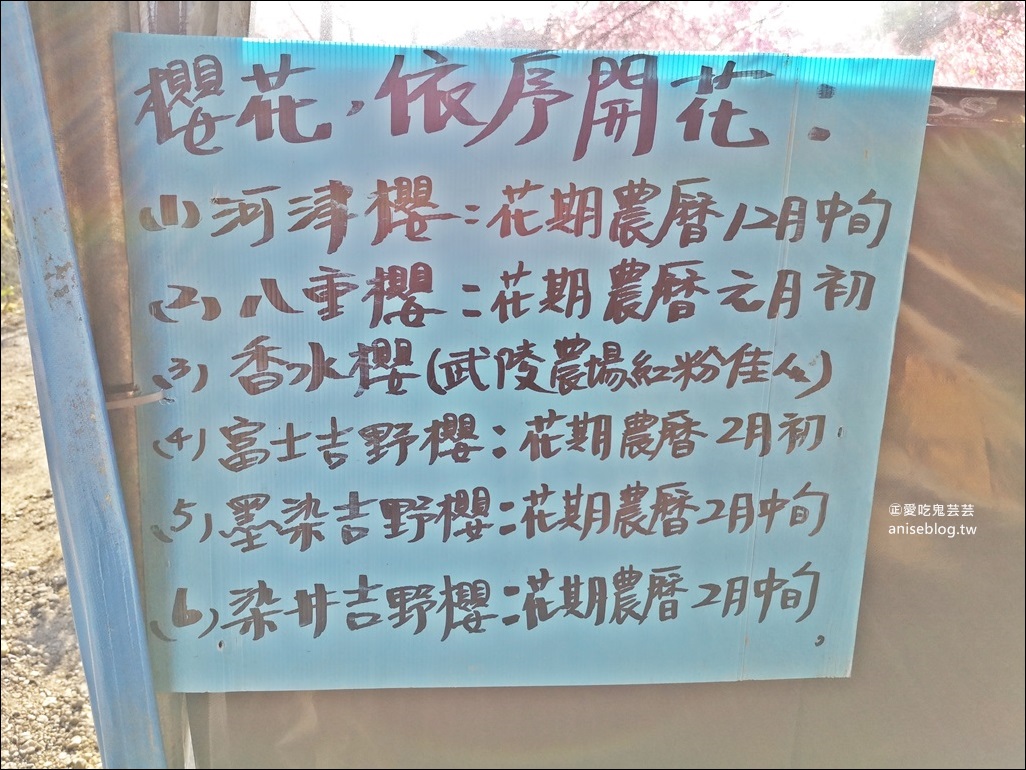 櫻花，依序開花：
(1)河津櫻：花期農曆12月中旬
(2)八重櫻：花期農曆元月初
(3)香水櫻(武陵農場紅粉佳人)
(4)富士吉野櫻：花期農曆2月初
(5)墨染吉野櫻：花期農曆2月中旬
(6)染井吉野櫻：花期農曆2月中旬
㊣愛吃鬼芸芸
aniseblog.tw